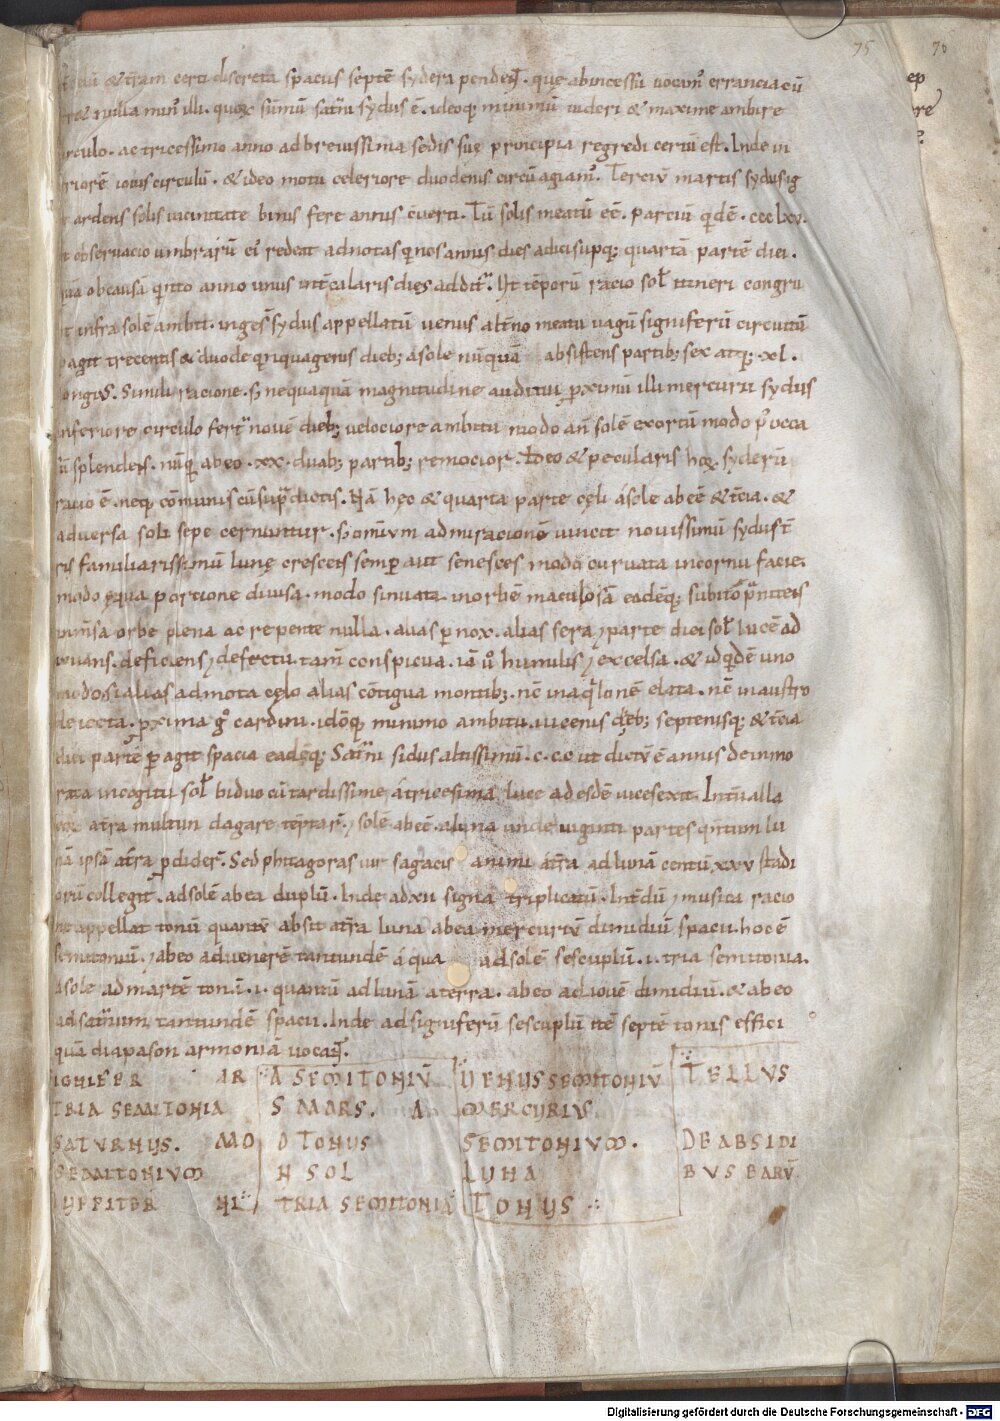 75
76
ep
ere
cęlū & t̄ram certi discreta spacus septē sydera pendent̄. quę ab incessu vocam̄ errancia cū
re& nulla min illi. quoꝝ sūmū Sat̄ni sydus ē. ideoq; minimū uideri & maxime ambire
circulo. ac tricessimo anno ad breuissima sedis suę principia regredi certū est. Inde in
feriorē iouis circulū. & ideo motu celeriore duodenis circū agiam̄. Terciū martis sydus ig
ardens solis uicinitate binis fere annis c̄uerti. Tū solis meatū eē. parciū qdē. ccc lxv.
ut obseruacio umbrarū ei redeat ad notas q̄nos annis dies adici supq; quartā partē diei.
quā ob causā qnto anno unus int̄cularis dies addit̄. Ut tēporū racio sol itineri congru
at infra solē ambit. ingēs sydus appellatū uenus alt̄no meatu uagū signiferū circuitū
pagit trecentis & duode qnquagenis dieb; a sole nūquā absistens partib; sex atq; xl.
longius. Simili racione. s; nequaquā magnitudine aut ui pximū illi mercurii sydus
inferiore circulo fert̄ nouē dieb; uelociore ambitu modo an̄ solē exortū modo p occa
ū splendēs. nūq ab eo .xx. duab; partib; remocior. Ideo & peculiaris hoꝝ syderū
racio ē. neq; cōmunis cū supdictis. Nā hęc & quarta parte cęli a sole abeē & t̄cia. &
aduersa soli sepe cernuntur. s; omīum admiracionē uincit nouissimū sydus t̄
ris familiarissimū lunę crescēs semp aut senescēs modo curuata in cornu facie.
modo ęqua porcione diuisa. modo sinuata in orbē maculosā eadēq; subito p̄nitēs
inm̄sa orbe plena ac repente nulla. alias pnox. alias sera ⁊ parte diei sol lucē ad
iuuans. deficiens ⁊ defectu tam̄ conspicua. iā ūo humilis ⁊ excelsa. & id qdē uno
modo s; alias admota cęlo alias cōtigua montib;. nē in aqlonē elata. nē in austro
deiecta. pxima g cardini. idōq; minimo ambitu. uicenis dieb; septenisq; & t̄cia
diei partē pagit spacia eadēq; Sat̄ni sidus altissimū. c. c.e ut dictū ē annis deinmo
rata in cogitu sol biduo cū tardissime a tricesima luce ad esdē uices exit. Intualla
quoq; at̄ra multi indagare tēptar̄. ⁊ solē abeē. a luna undeuiginti partes qntum lu
nā ipsā at̄ra pdider̄. Sed phitagoras uir sagacis animi at̄ra ad lunā centū .xxv stadi
orū collegit. ad solē ab ea duplū. Inde ad xii signa triplicatū. Int̄dū ⁊ musica racio
ne appellat tonū quantū absit at̄ra luna ab ea mercuriū dimidiū spacii. hoc ē
semitoniū. ⁊ ab eo ad uenerē tantundē á qua ad solē sescuplū .i. tria semitonia.
a sole ad martē tonū .i. quantū ad lunā a terra. ab eo ad iouē dimidiū. & ab eo
ad saturnum tantundē spacii. Inde ad signiferū sescuplū ītē septē tonis effici
quā diapason armoniā uocant̄.
IGNIFER AR A SEMITONIŪ UENUS SEMITONIŪ TELLUS
TRIA SEMITONIA S MARS. A MERCURIUS.
SATURNUS. MO O TONUS SEMITONIUM. DE ABSIDI
SEMITONIUM N SOL LUNA BUS EARŪ
IUPPITER NI TRIA SEMITONIA TONUS
Digitalisierung gefördert durch die Deutsche Forschungsgemeinschaft - DFG